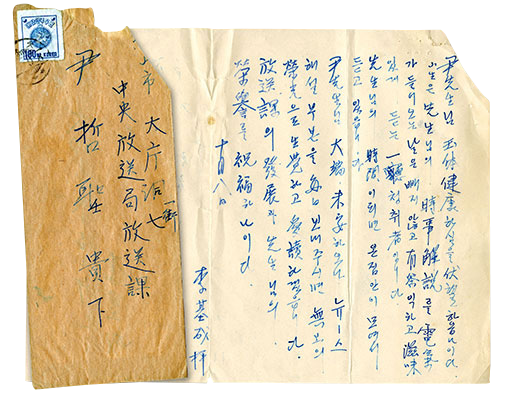 市 大庁洞一街七
中央放送局放送課
尹哲聖 貴下
尹先生님 玉体健康하심을 伏望하옵나이다.
小生은 先生님의 時事解説를 電氣
가 들어오는 날은 빼지 않고 有益하고 滋味
있게 듣는 一聴취者입니다
先生님의 時間이 되면 온집안이 모여서
듣고 있읍니다
尹先生님 大端未安하오나 뉴ー스
해설 부본을 每日 보내주시면 無上의
榮光으로 生覺하고 읽겠읍니다.
放送課의 發展과 先生님의
榮譽를 祝福하나이다.
十月八日
李基成 拝